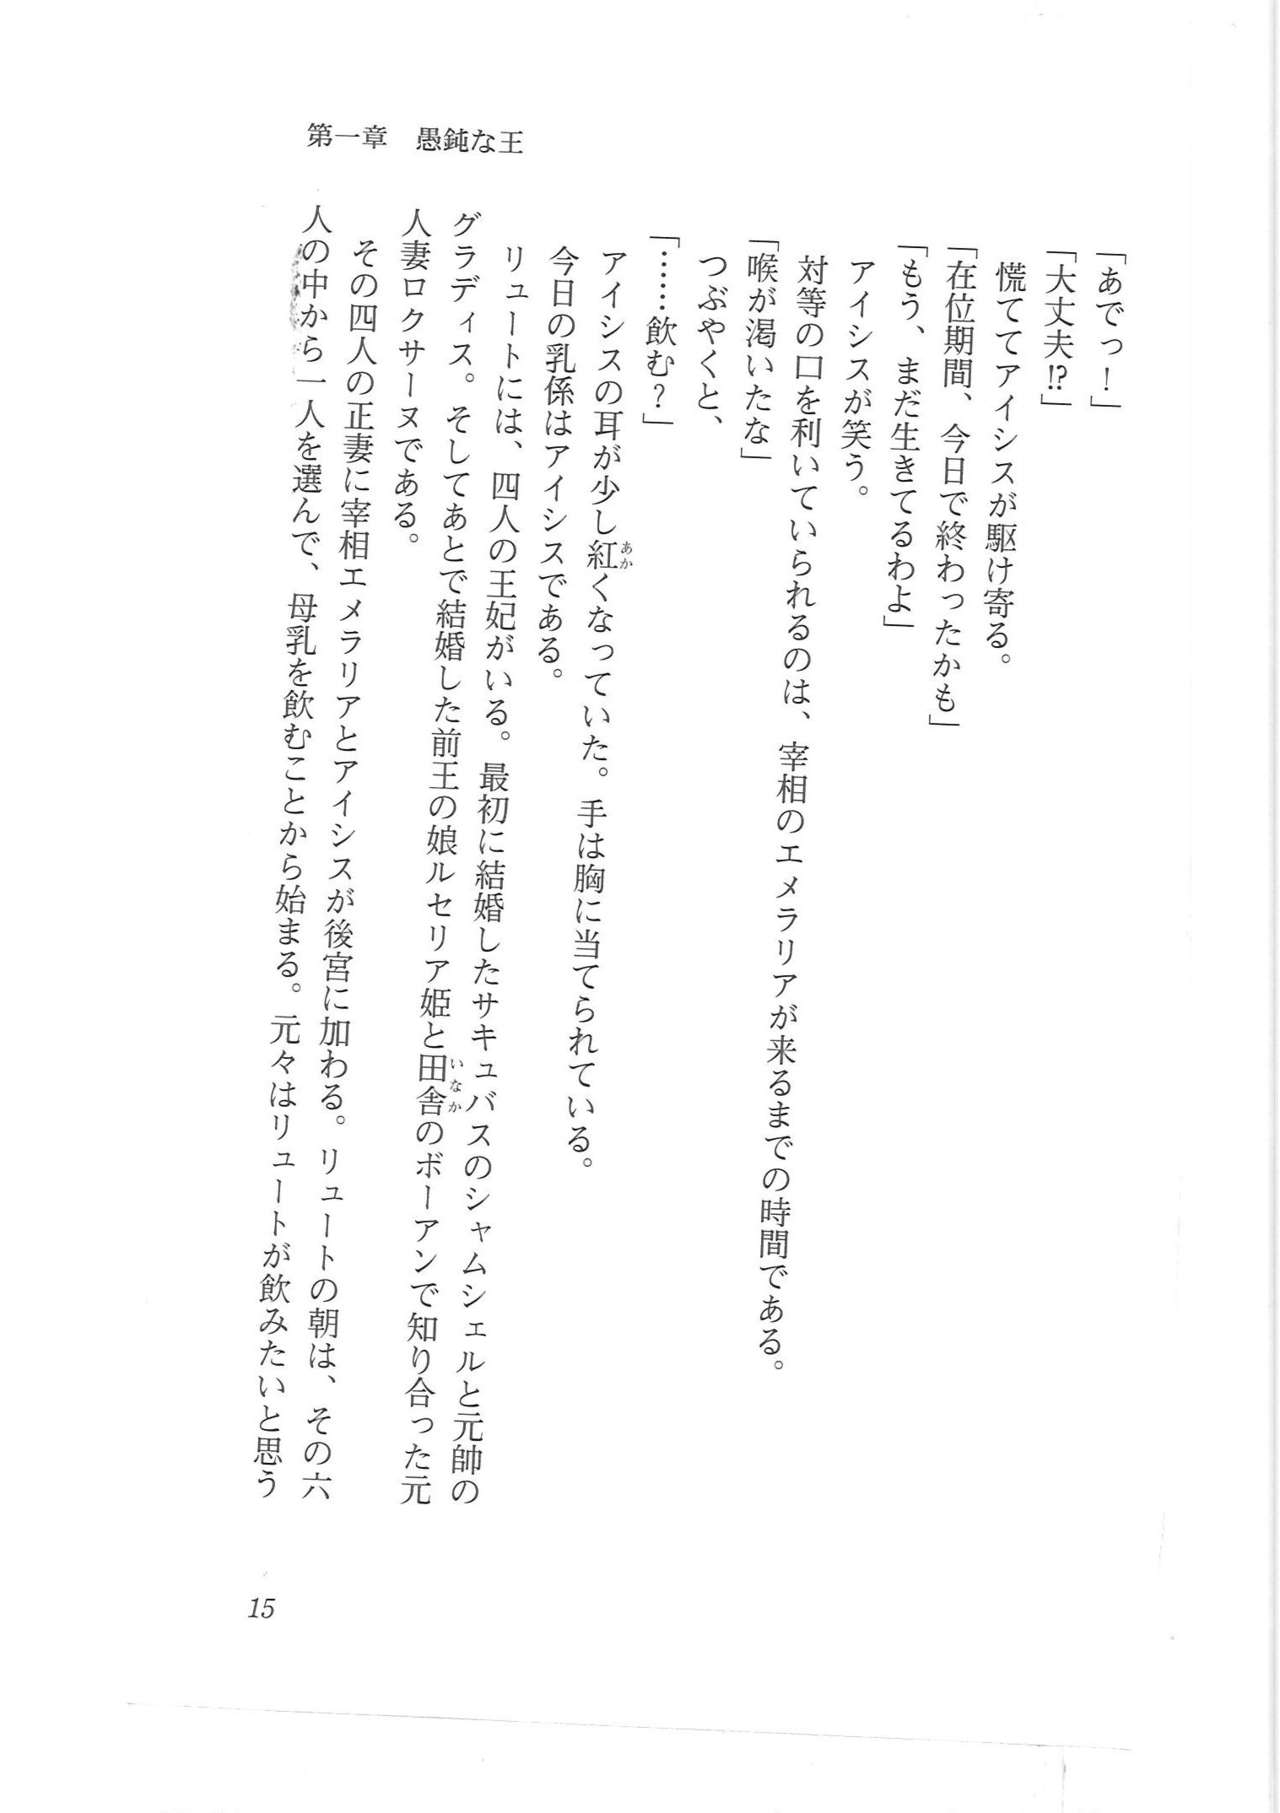 第一章　愚鈍な王
「あでっ！」
「大丈夫!?」
慌ててアイシスが駆け寄る。
「在位期間、今日で終わったかも」
「もう、まだ生きてるわよ」
アイシスが笑う。
対等の口を利いていられるのは、宰相のエメラリアが来るまでの時間である。
「喉が渇いたな」
つぶやくと、
「……飲む？」
アイシスの耳が少し紅くなっていた。手は胸に当てられている。
今日の乳係はアイシスである。
リュートには、四人の王妃がいる。最初に結婚したサキュバスのシャムシェルと元帥の
グラディス。そしてあとで結婚した前王の娘ルセリア姫と田舎のボーアンで知り合った元
人妻ロクサーヌである。
その四人の正妻に宰相エメラリアとアイシスが後宮に加わる。リュートの朝は、その六
人の中から一人を選んで、母乳を飲むことから始まる。元々はリュートが飲みたいと思う
15